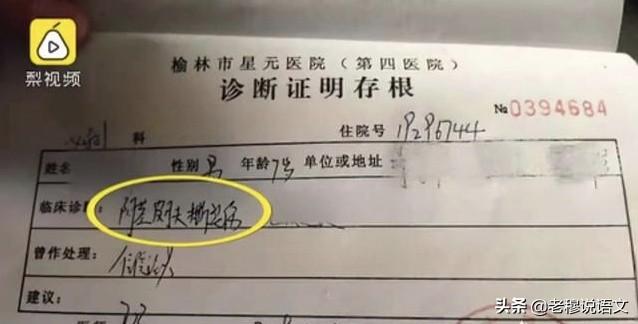 梨视频
榆林市星元医院(第四医院)
诊断证明存根
№0394684
科 住院号 19296744
姓名 性别 男 年龄 7岁 单位或地址
临床诊断: 阴茎皮肤撕裂伤
曾作处理:
建议:
头条 @老穆说语文